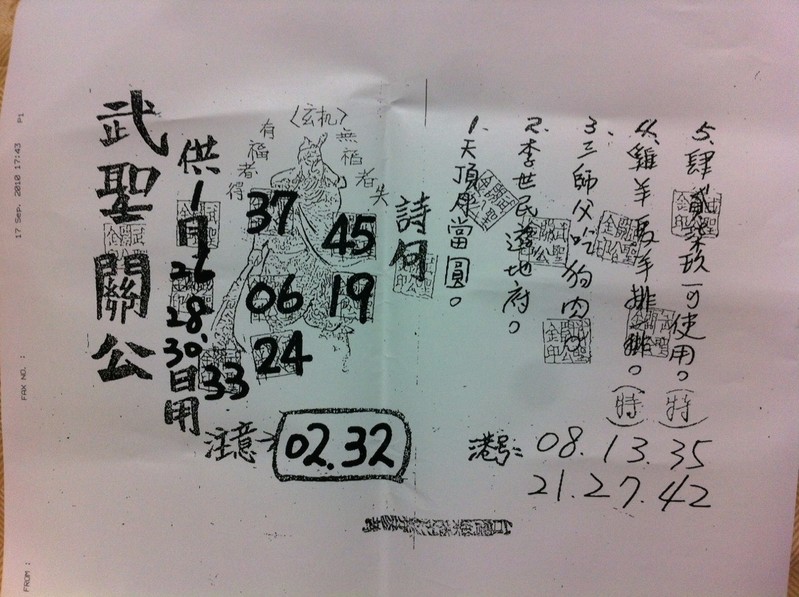 17 Sep. 2010 17:43 P1
FAX NO. :
FROM :
武聖關公
供1月26.28.30.日用
〈玄机〉
有福者得
無福者失
37
45
06
19
24
33
注意→ 02.32
詩句
1. 天頂月當圓。
2. 李世民遊地府。
3. 三師父吃狗肉。
4. 雞羊取羊排。(特)
5. 肆貳柒玖可使用。(特)
港号: 08.13.35
21.27.42